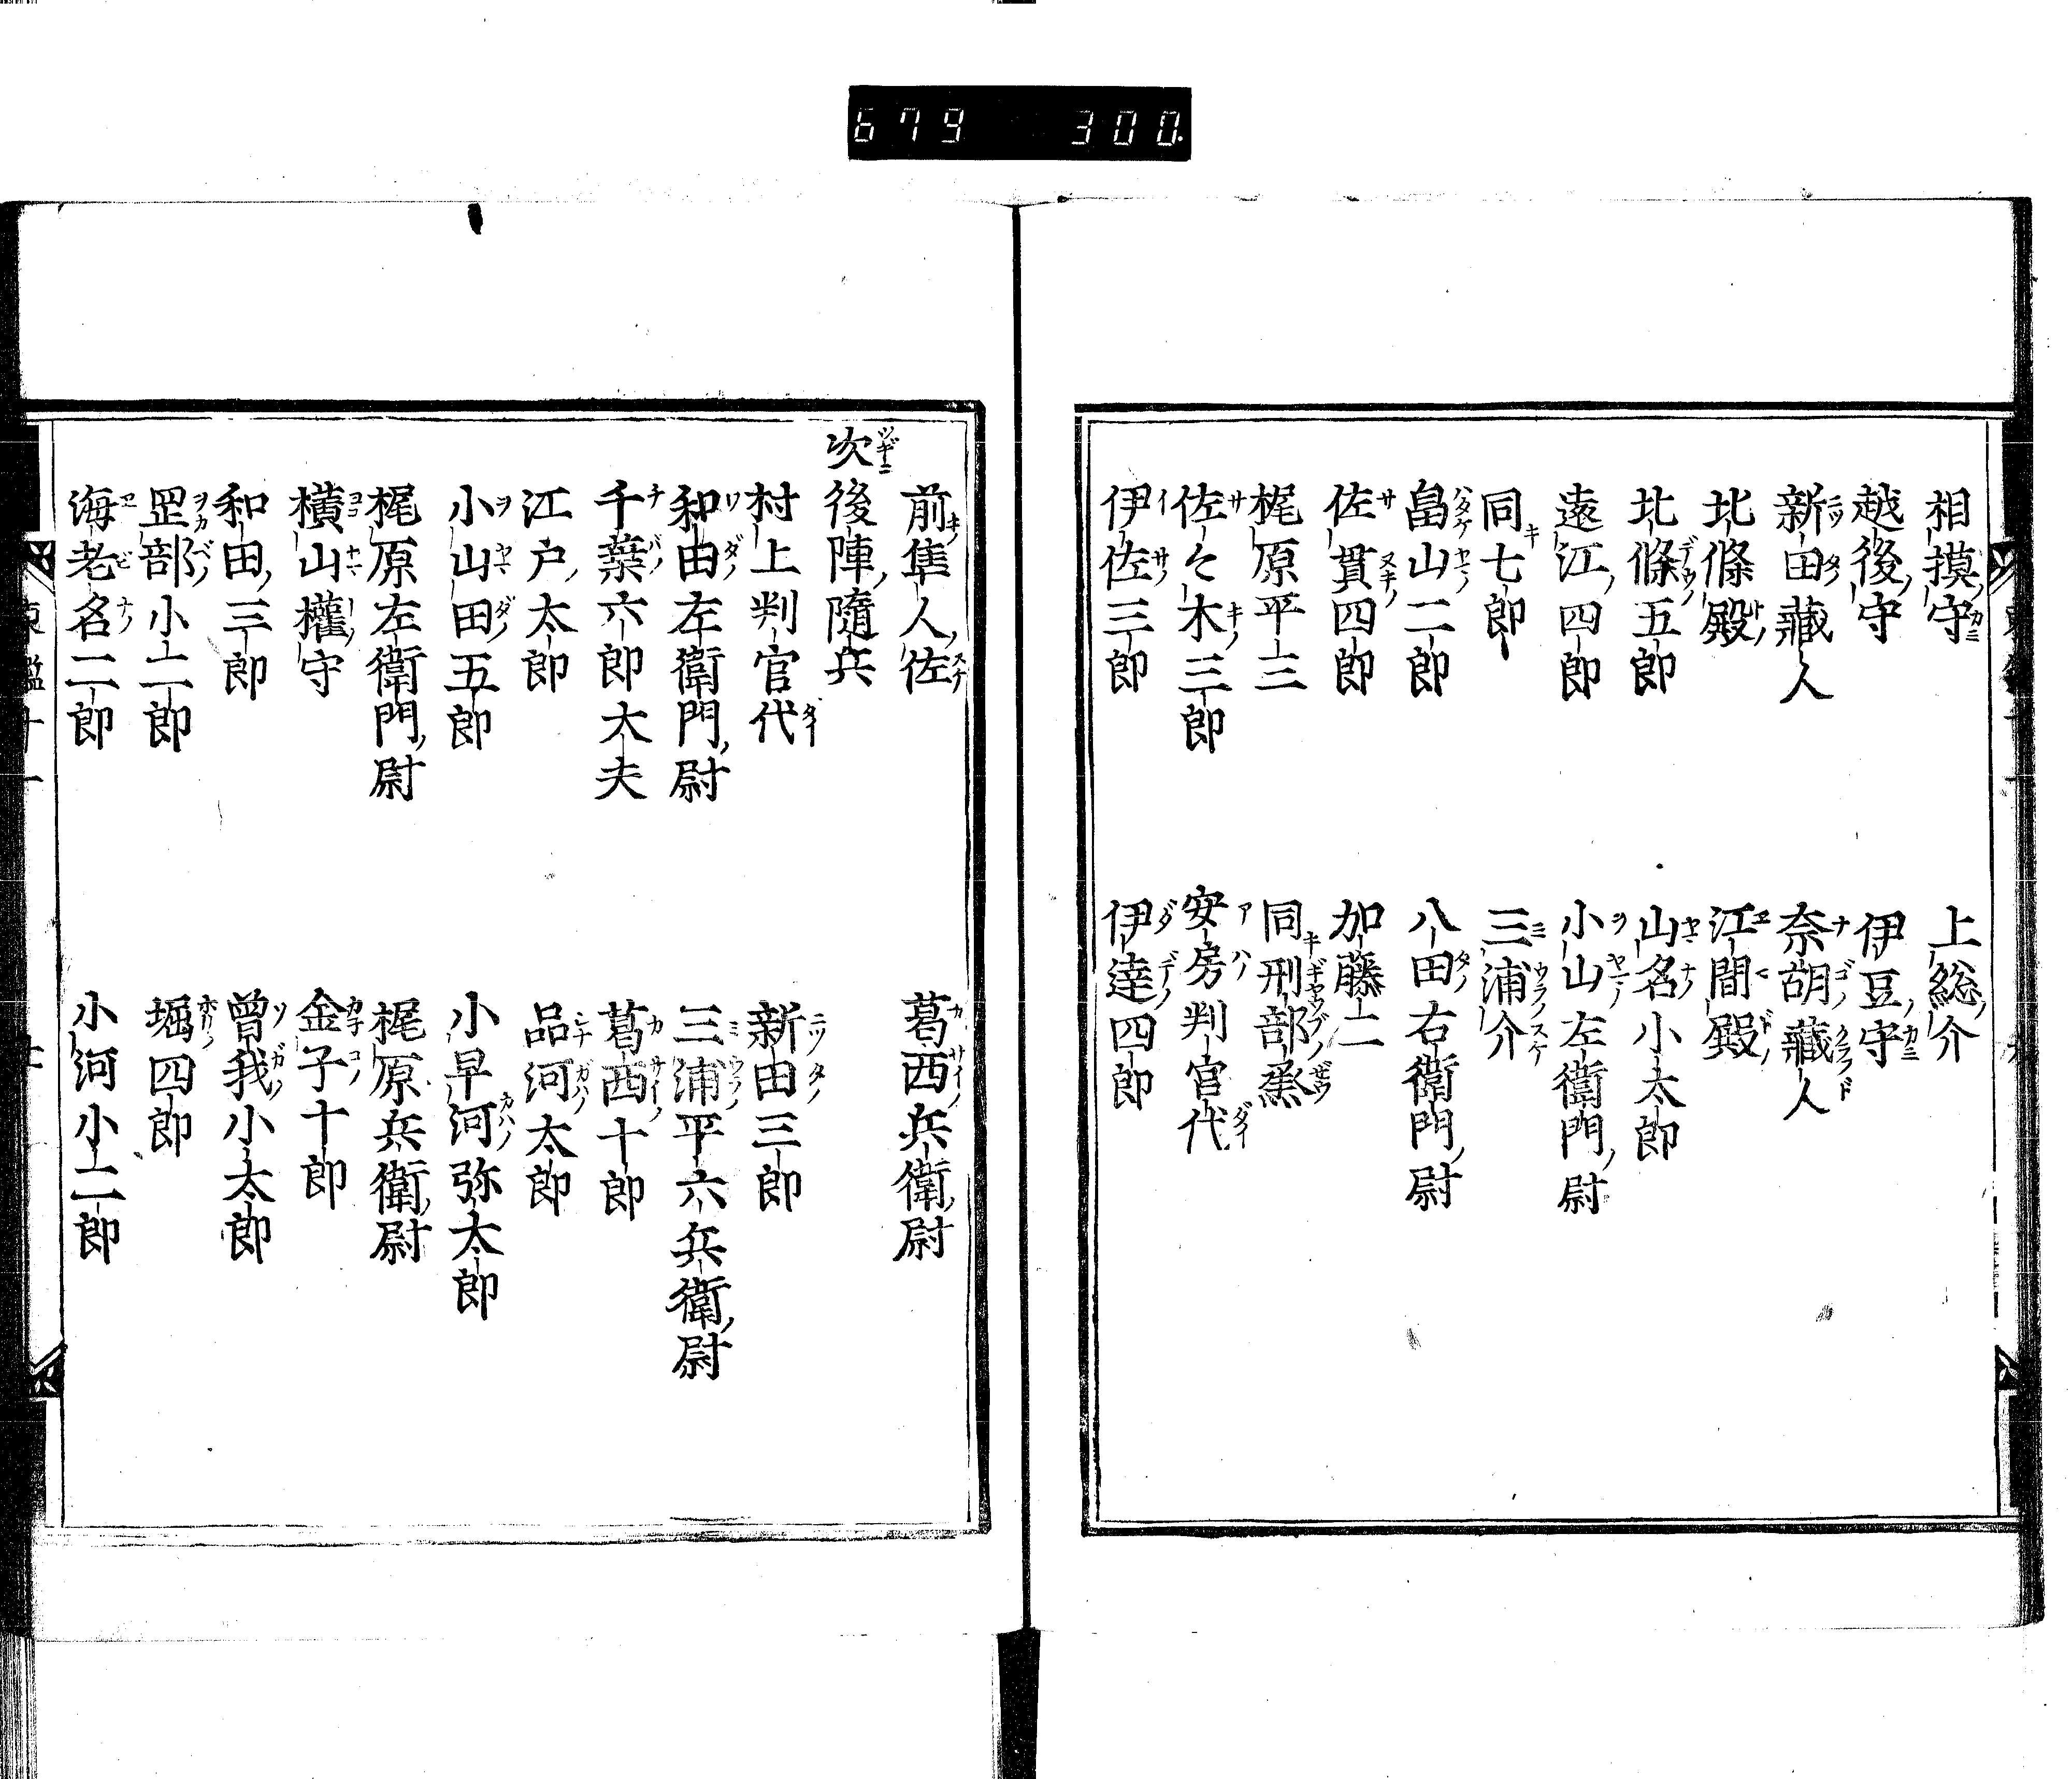 679 300.
相摸守 上総介
越後守 伊豆守
新田藏人 奈胡藏人
北條殿 江間殿
北條五郎 山名小太郎
遠江四郎 小山左衛門尉
同七郎 三浦介
畠山二郎 八田右衛門尉
佐貫四郎 加藤二
梶原平三 同刑部烝
佐々木三郎 安房判官代
伊佐三郎 伊達四郎
前隼人佐 葛西兵衛尉
次後陣隨兵
村上判官代 新田三郎
和田左衛門尉 三浦平六兵衛尉
千葉六郎大夫 葛西十郎
江戸太郎 品河太郎
小山田五郎 小早河弥太郎
梶原左衛門尉 梶原兵衛尉
横山權守 金子十郎
和田三郎 曾我小太郎
罡部小二郎 堀四郎
海老名二郎 小河小二郎